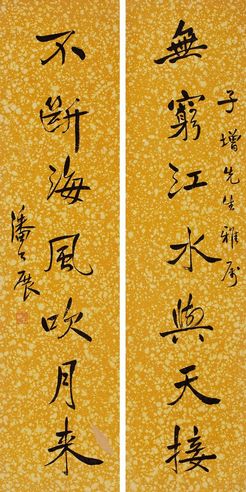 子增先生雅属
無窮江水與天接
不斷海風吹月来
潘公展